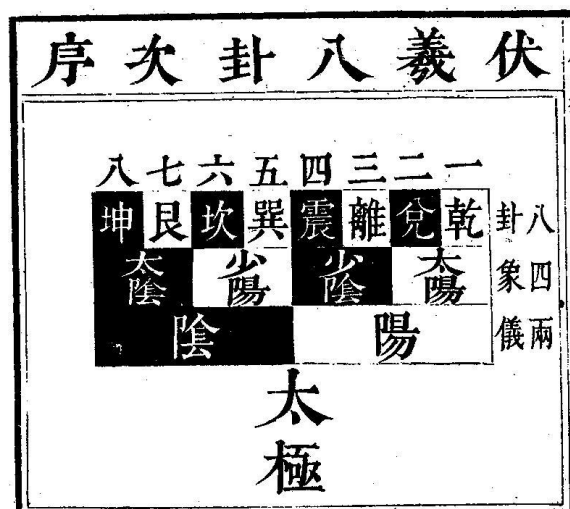 伏羲八卦次序
一二三四五六七八
八卦
乾兌離震巽坎艮坤
四象
太陽 少陰 少陽 太陰
兩儀
陽 陰
太極